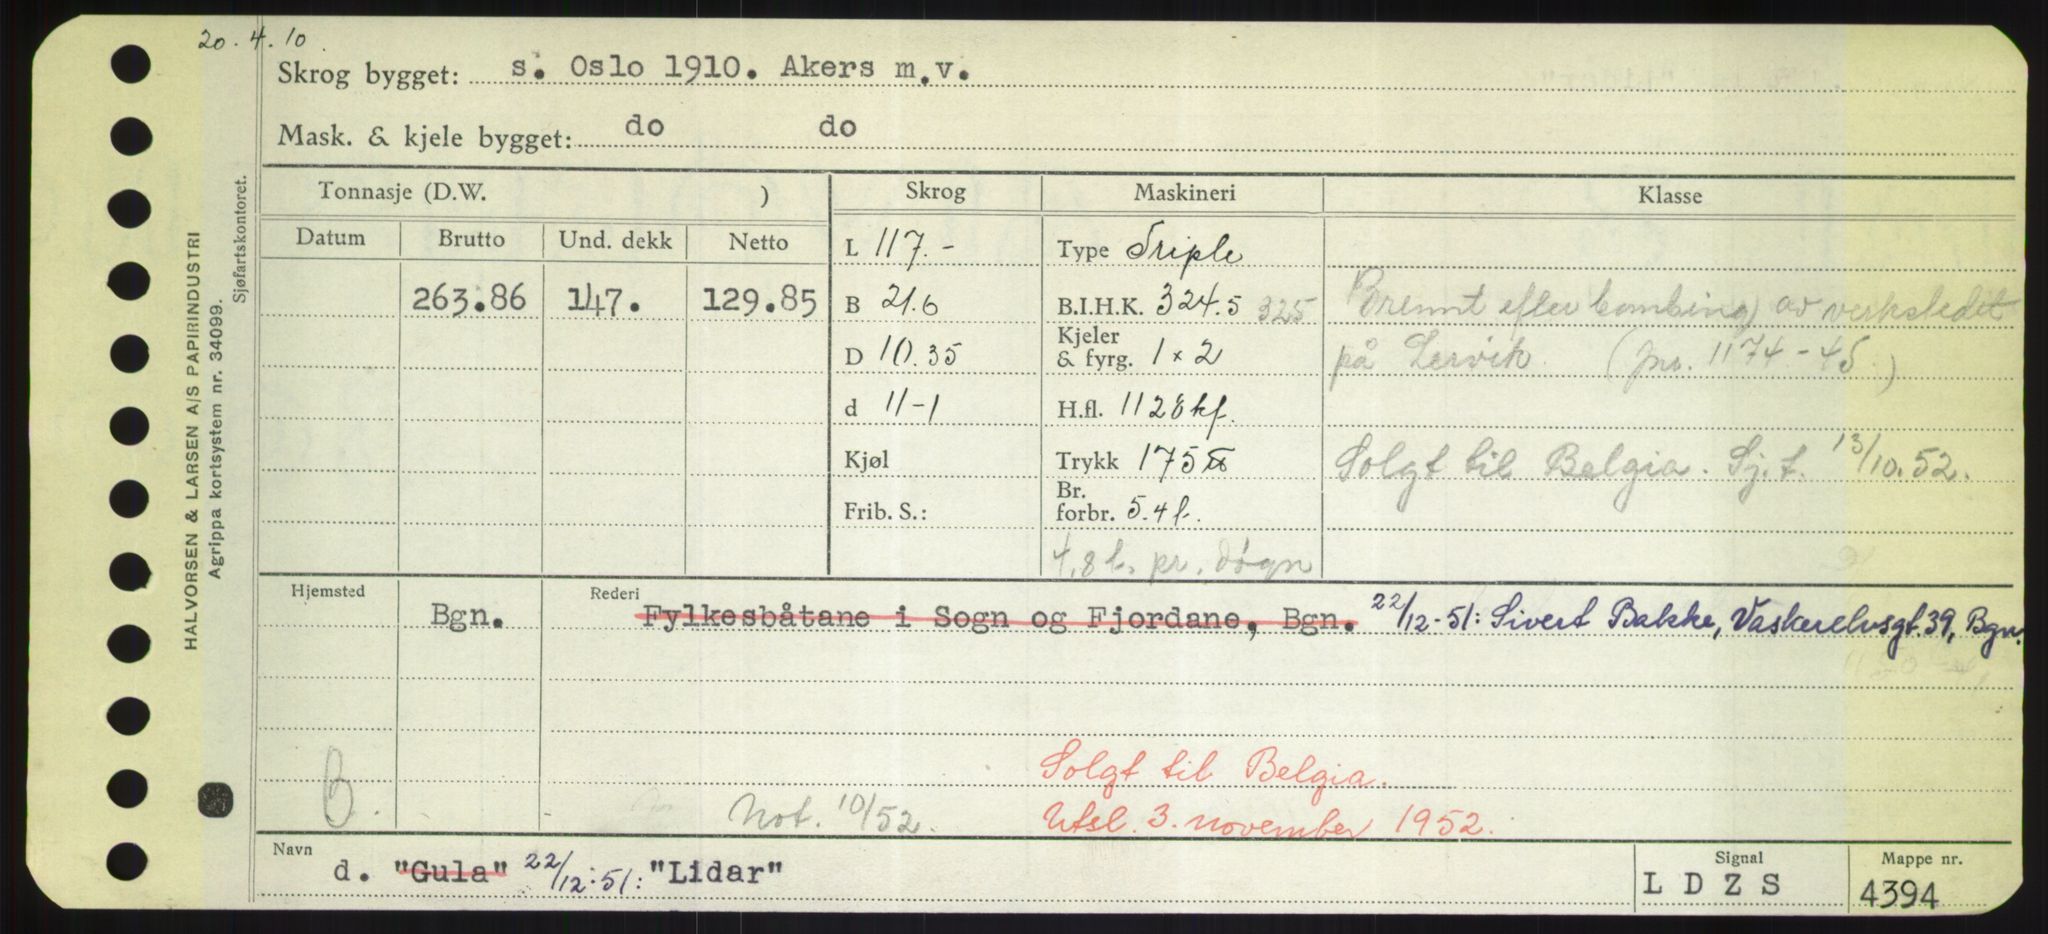 20.4.10.
Skrog bygget: s. Oslo 1910. Akers m.v.
Mask. & kjele bygget: do do
HALVORSEN & LARSEN A/S PAPIRINDUSTRI
Agrippa kortsystem nr. 34099.
Sjøfartskontoret.
Tonnasje (D.W. ) Skrog Maskineri Klasse
Datum Brutto Und. dekk Netto
L 117.- Type Triple
263.86 147. 129.85 B 21.6 B.I.H.K. 324.5 325 Brennt efter bombing av verkstedet
D 10.35 Kjeler & fyrg. 1 x 2 på Lervik. (jnr. 1174-45.)
d 11-1 H.fl. 1128 kf.
Kjøl Trykk 175 Solgt til Belgia. Sj.t. 13/10.52.
Frib. S.: Br. forbr. 5.4 t.
4.8 t. pr. døgn
Hjemsted Rederi
Bgn. Fylkesbåtane i Sogn og Fjordane, Bgn. 22/12-51: Sivert Bakke, Vaskerelvsgt. 39, Bgn.
Solgt til Belgia.
B. Not. 10/52. Utsl. 3. november 1952.
Navn Signal Mappe nr.
d. "Gula" 22/12.51: "Lidar" LDZS 4394